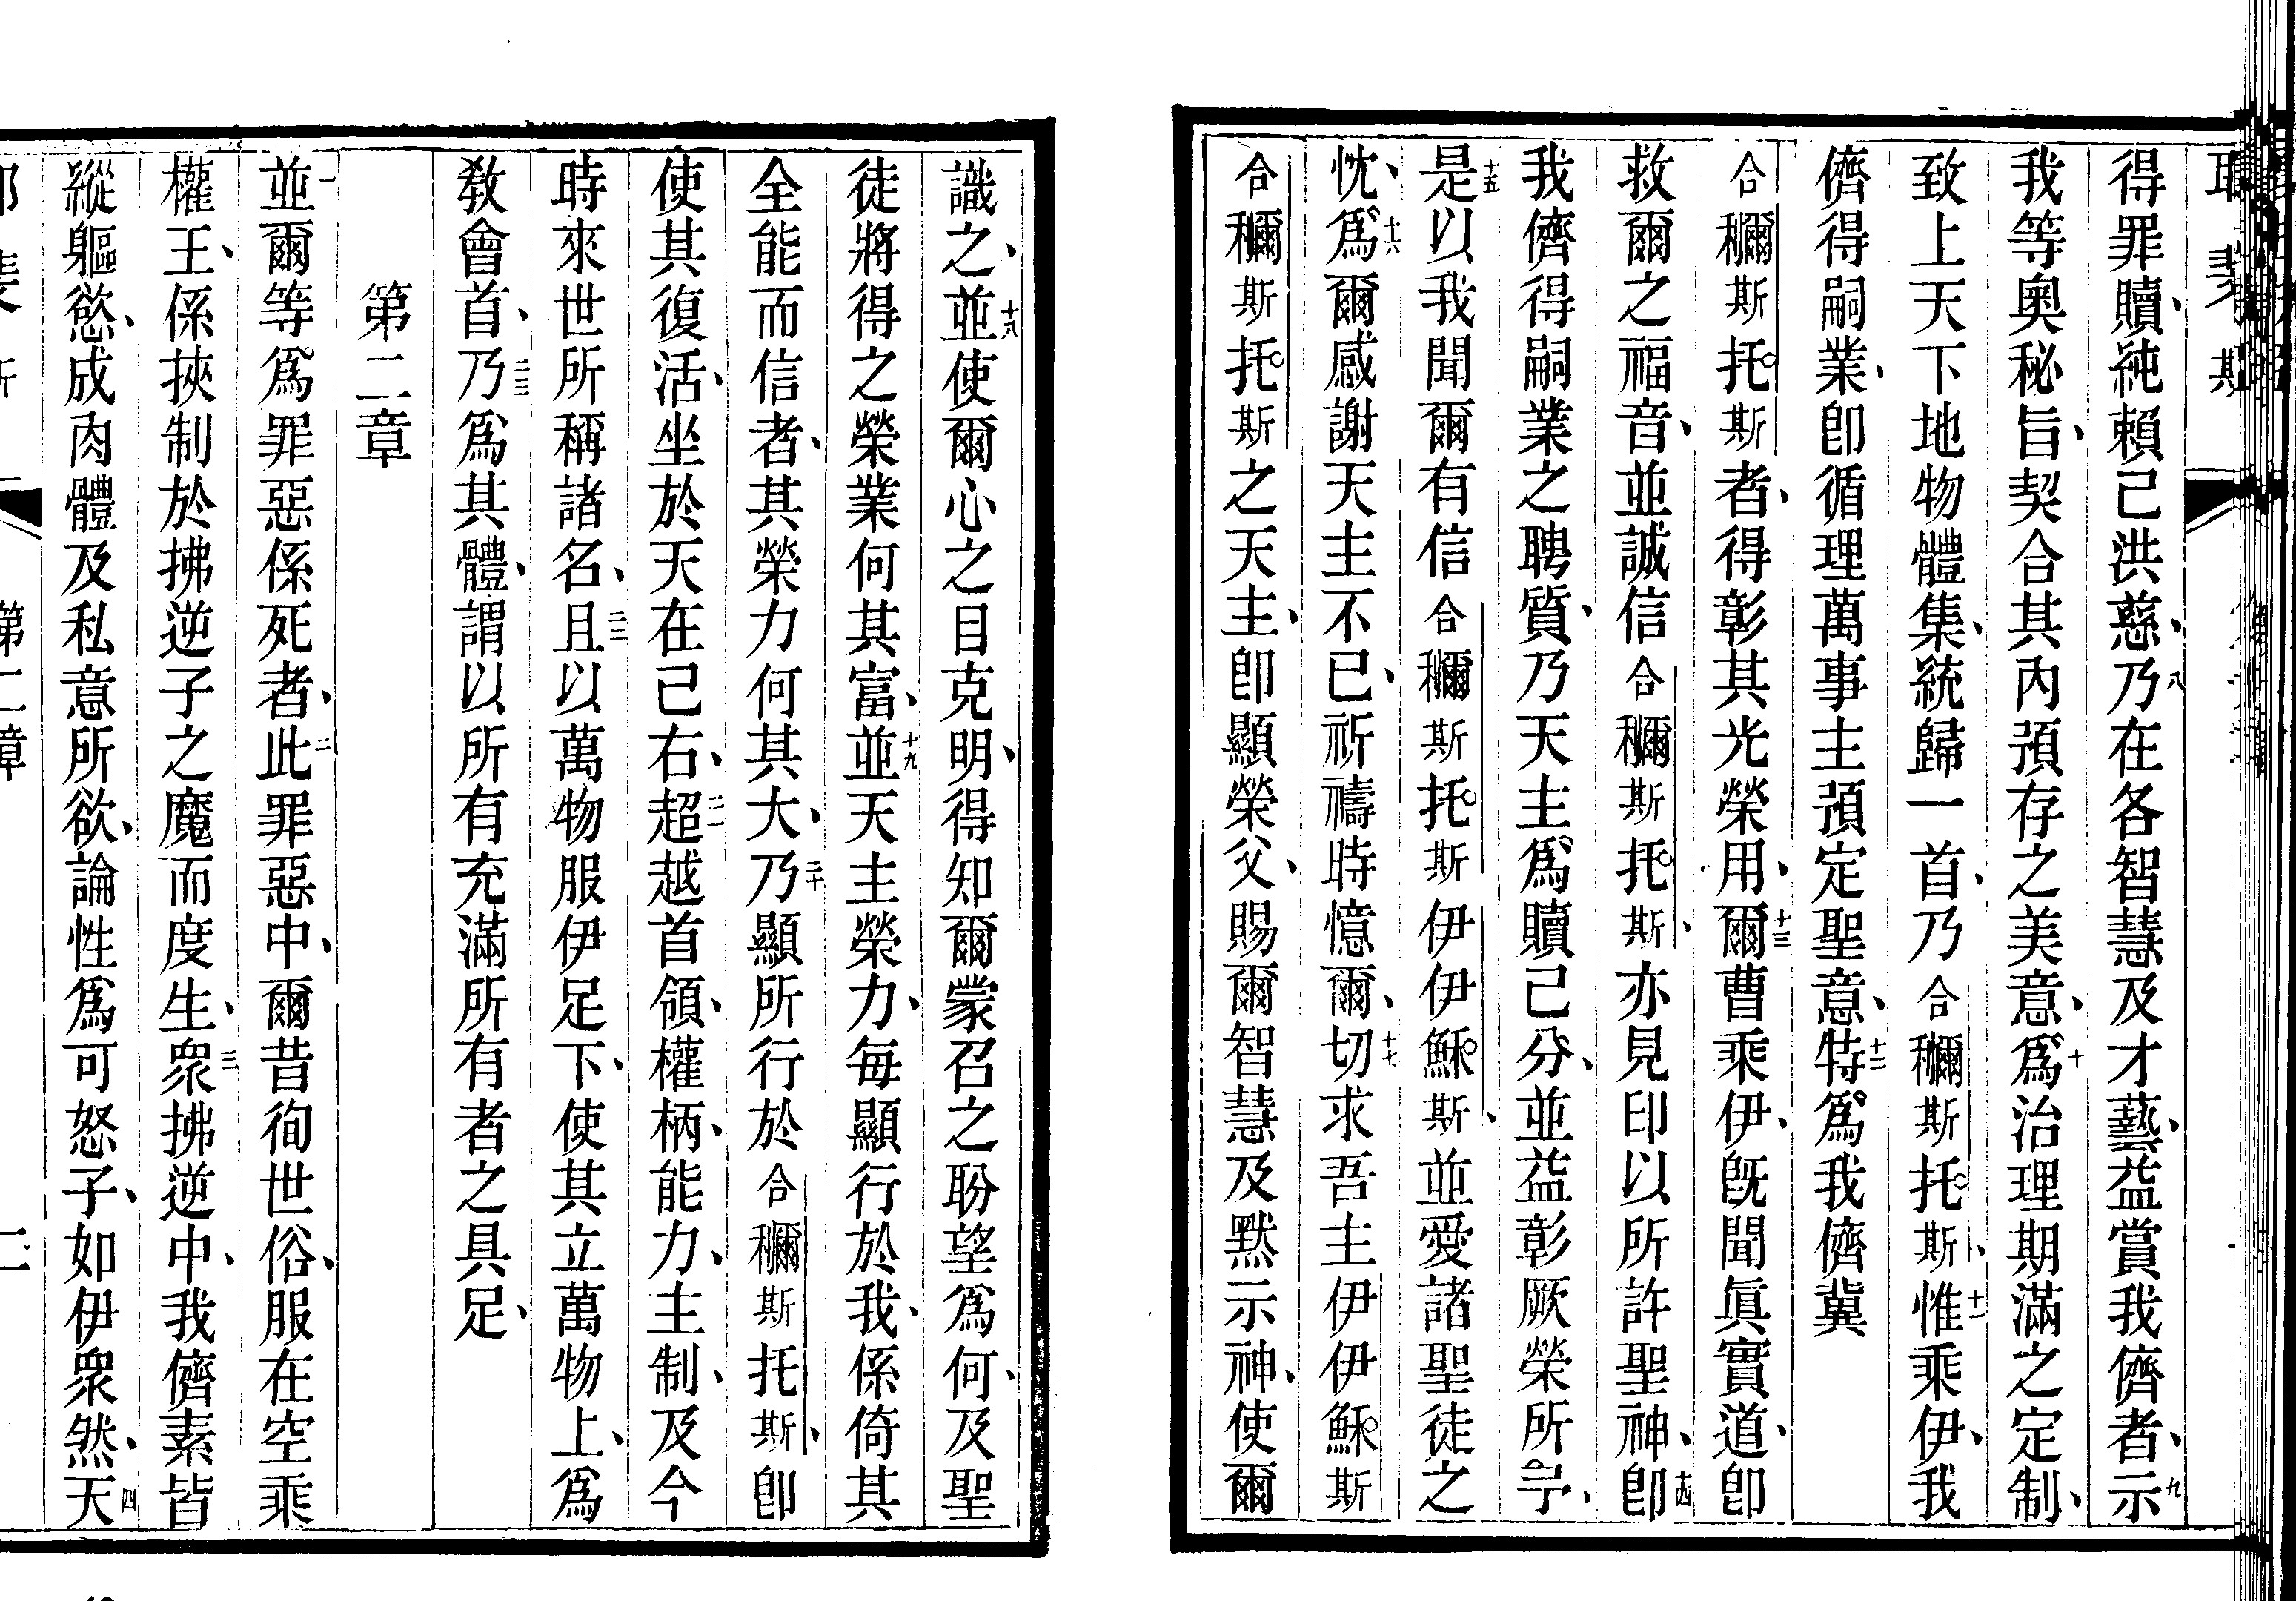 得罪贖、純賴己洪慈、八乃在各智慧及才藝、益賞我儕者、九示
我等奧秘旨、契合其內預存之美意、十爲治理期滿之定制、
致上天下地物體集、統歸一首、乃合穪斯托斯、十一惟乘伊、我
儕得嗣業、卽循理萬事主預定聖意、十二特爲我儕冀
合穪斯托斯者、得彰其光榮用、十三爾曹乘伊、旣聞眞實道、卽
救爾之福音、並誠信合穪斯托斯、亦見印以所許聖神、十四卽
我儕得嗣業之聘質、乃天主爲贖己分、並益彰厥榮所予、
十五是以我聞爾有信合穪斯托斯伊伊穌斯、並愛諸聖徒之
忱、十六爲爾感謝天主不已、祈禱時憶爾、十七切求吾主伊伊穌斯
合穪斯托斯之天主、卽顯榮父、賜爾智慧及默示神、使爾
識之、十八並使爾心之目克明、得知爾蒙召之盼望爲何、及聖
徒將得之榮業何其富、十九並天主榮力、每顯行於我、係倚其
全能而信者、其榮力何其大、二十乃顯所行於合穪斯托斯、卽
使其復活、坐於天在己右、二一超越首領、權柄、能力、主制、及今
時來世所稱諸名、二二且以萬物服伊足下、使其立萬物上、爲
教會首、二三乃爲其體、謂以所有充滿所有者之具足、
第二章
一並爾等爲罪惡係死者、二此罪惡中、爾昔徇世俗、服在空乘
權王、係挾制於拂逆子之魔而度生、三衆拂逆中、我儕素皆
縱軀慾、成肉體及私意所欲、論性爲可怒子、如伊衆然、四天
第二章
二